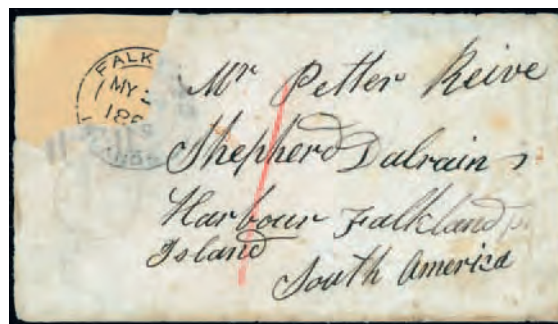 FALK
MY 2
186
Mr Petter Reive
Shepherd Dalrain
Harbour Falkland
Island
South America